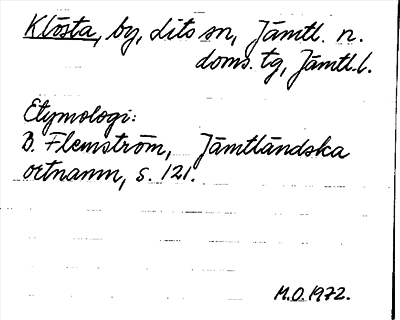 Klösta, by, Lits sn, Jämtl. n.
doms. tg, Jämtl. l.
Etymologi:
B. Flemström, Jämtländska
ortnamn, s. 121.
M.O. 1972.